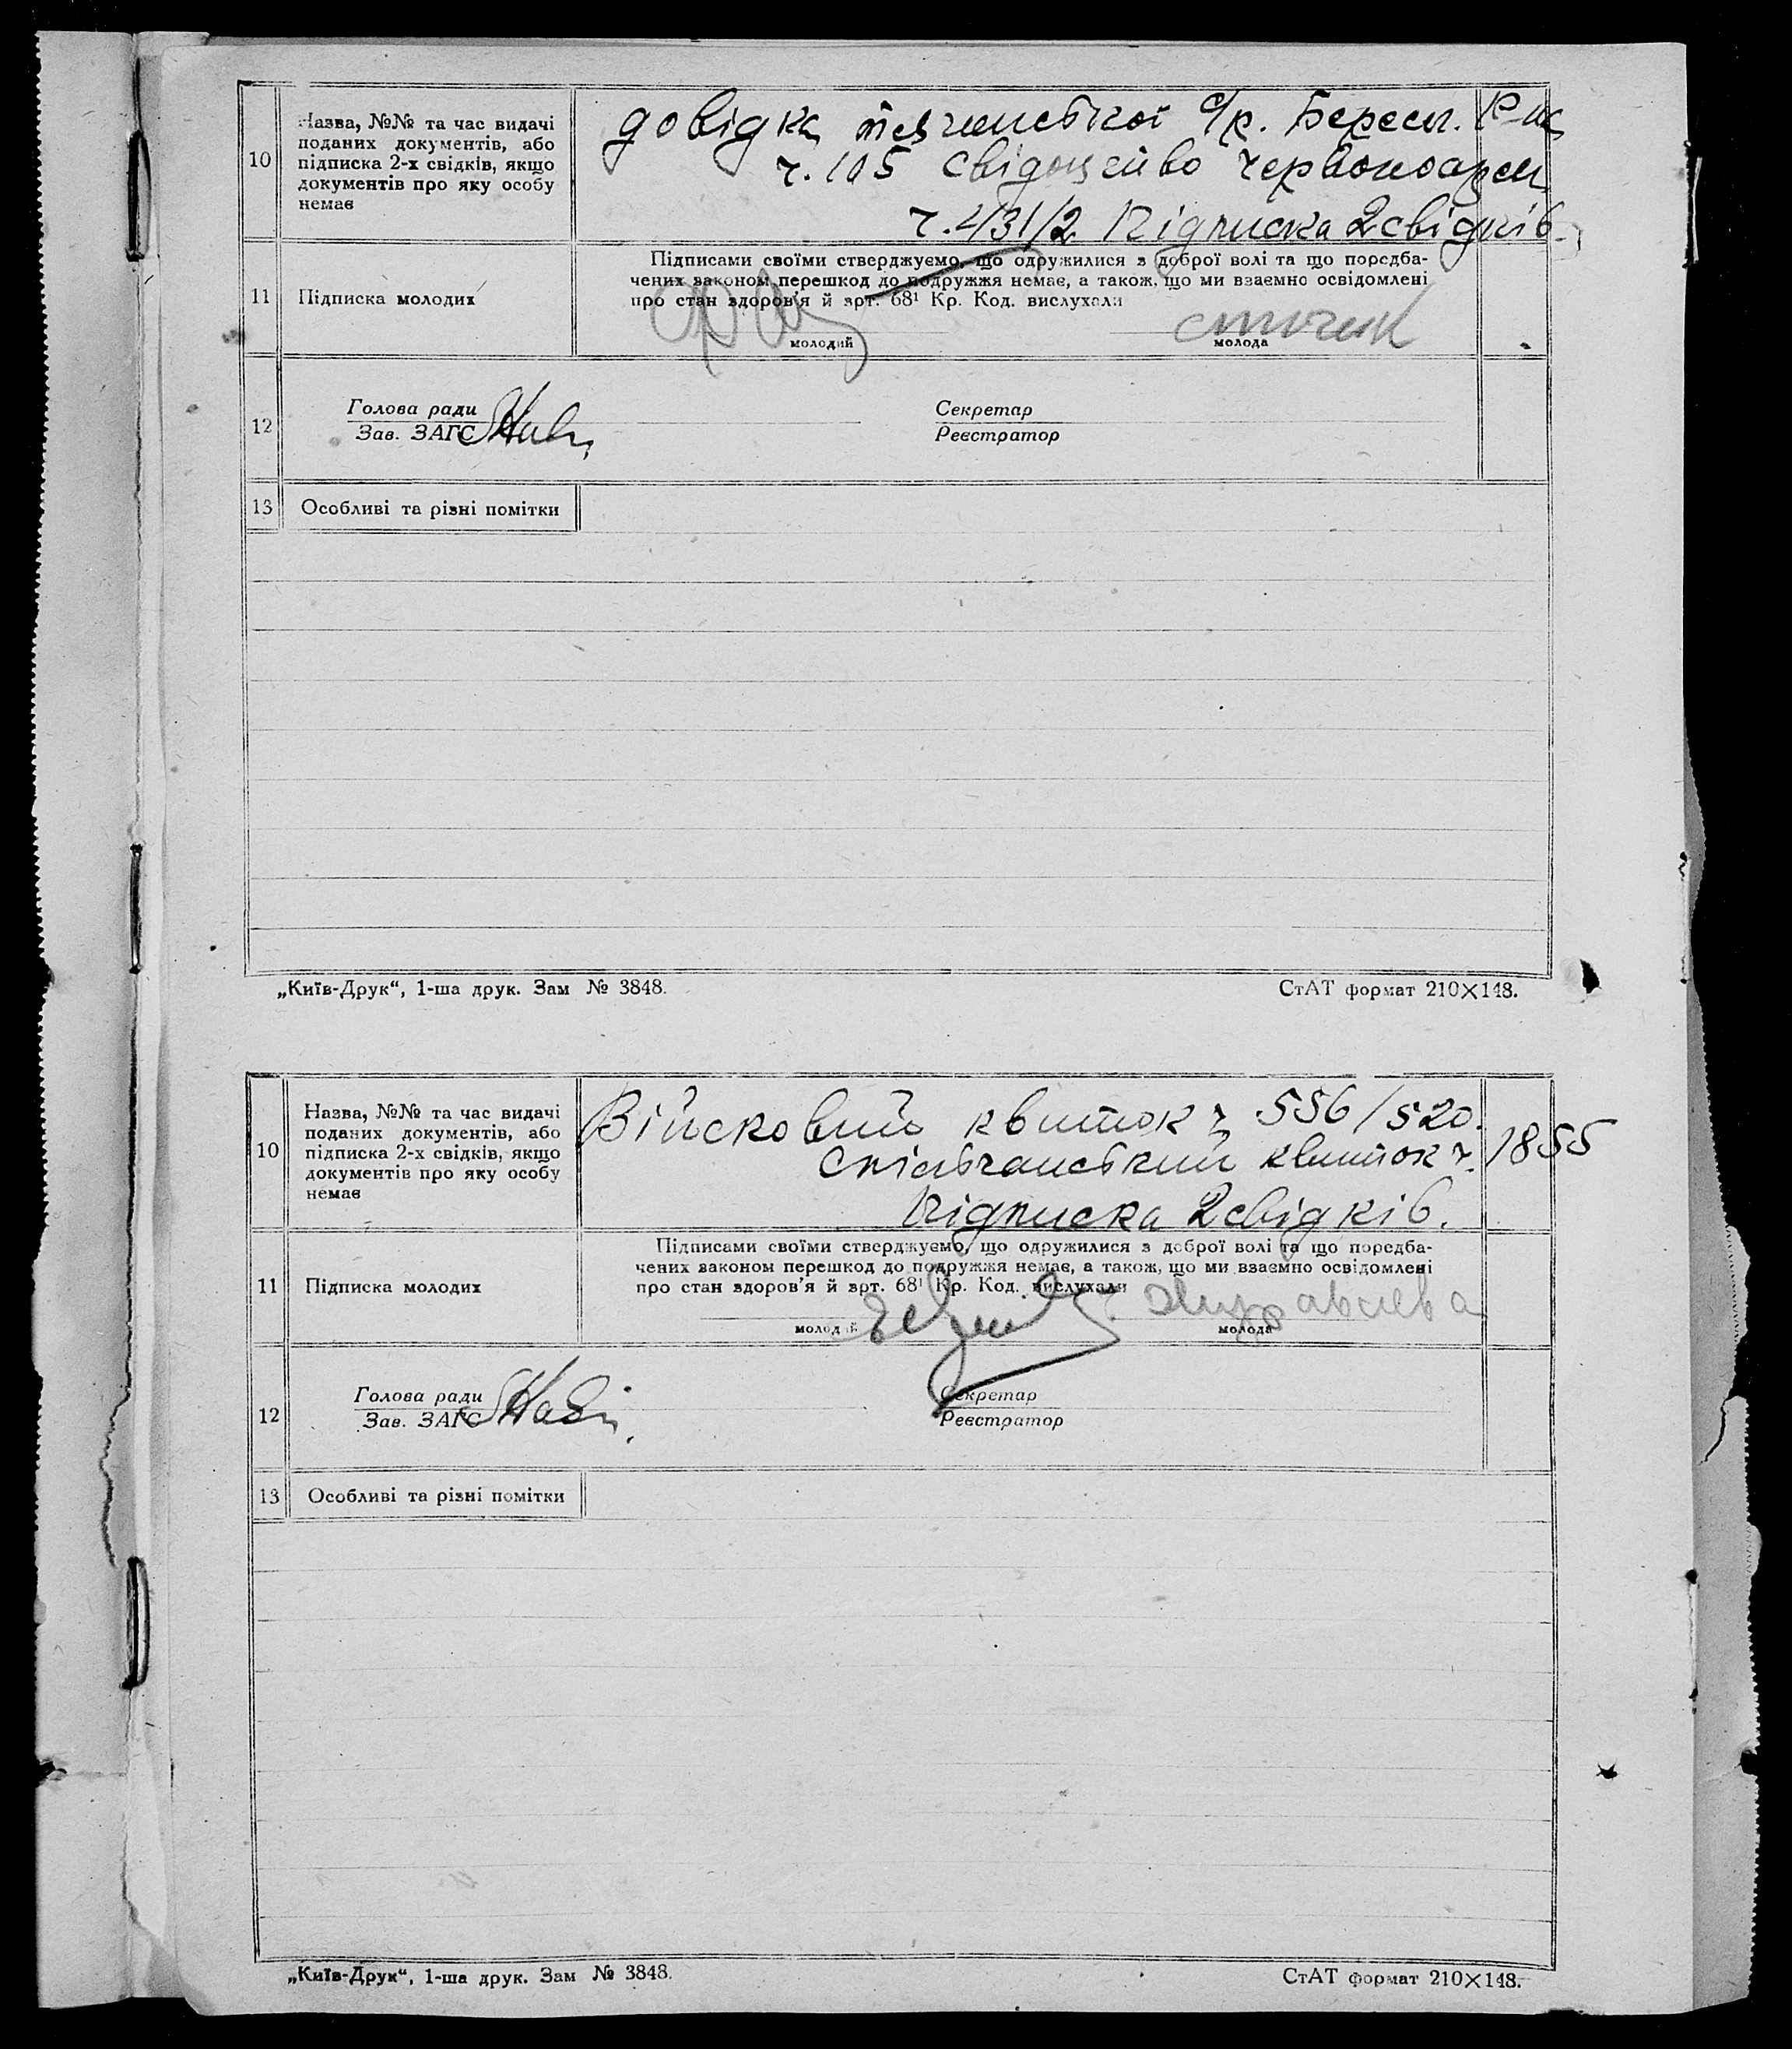 10
Назва, №№ та час видачі
поданих документів, або
підписка 2-х свідків, якщо
документів про яку особу
немає
довідка с/р. Берест. Р-на
ч. 105 свідоцтво червоноармі
ч. 431/2 Підписка 2 свідків.
11
Підписка молодих
Підписами своїми стверджуємо, що одружилися з доброї волі та що поредба-
чених законом перешкод до подружжя немає, а також, що ми взаємно освідомлені
про стан здоров'я й арт. 68¹ Кр. Код. вислухали
молодий
молода
12
Голова ради
Зав. ЗАГС
Секретар
Реєстратор
13
Особливі та різні помітки
„Київ-Друк“, 1-ша друк. Зам № 3848.
СтАТ формат 210×148.
10
Назва, №№ та час видачі
поданих документів, або
підписка 2-х свідків, якщо
документів про яку особу
немає
Війсковий квиток ч 556/520.
Спілчанський квиток ч. 1855
Підписка 2 свідків.
11
Підписка молодих
Підписами своїми стверджуємо, що одружилися з доброї волі та що поредба-
чених законом перешкод до подружжя немає, а також, що ми взаємно освідомлені
про стан здоров'я й арт. 68¹ Кр. Код. вислухали
молодий
Журавлева
молода
12
Голова ради
Зав. ЗАГС
Секретар
Реєстратор
13
Особливі та різні помітки
„Київ-Друк“, 1-ша друк. Зам № 3848.
СтАТ формат 210×148.